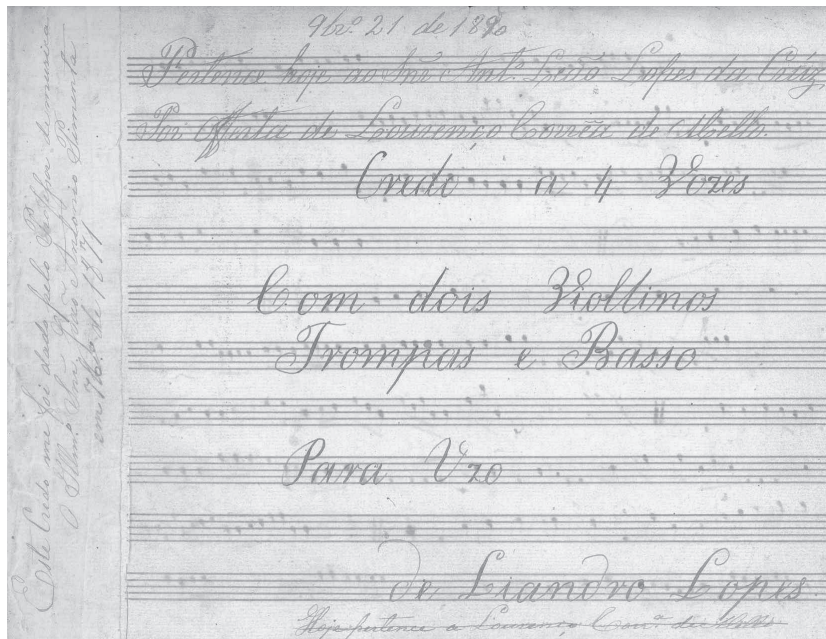 9br.º 21 de 1890
Pertence hoje ao Snr. Antº. Leão Lopes da Crúz
Por offerta de Lourenço Corrêa de Mello.
Credo a 4 Vozes
Com dois Violtinos
Trompas e Basso
Para Uzo
de Liandro Lopes.
Hoje pertence a Lourenço Corr.ª de Mello
Este Credo me foi dado pelo de musica
O Illmº. Snr. João Antonio Pimenta
em de 1871